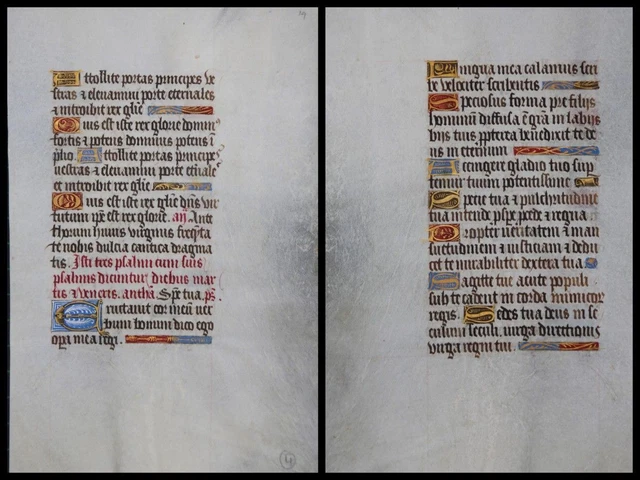 Attollite portas principes ve
stras & eleuamini porte eternales
& introibit rex glorie
Quis est iste rex glorie domin9
fortis & potens dominus potens i
plio. Attollite portas principes
uestras & eleuamini porte etnale
et introibit rex glorie
Quis est iste rex glorie dns vir
tutum ipe est rex glorie. an. Ante
thorum huius virginis freqta
te nobis dulcia cantica dragma
tis. Isti tres psalmi cum suis
psalmis dicuntur diebus mar
tis & veneris. antha. Spe tua. ps.
Eructauit cor meu uer
bum bonum dico ego
opa mea regi.
Lingua mea calamus scri
be velociter scribentis
Speciosus forma pre filijs
hominu diffusa e gra in labijs
tuis ppterea benedixit te de
us in eternum
Accingere gladio tuo sup
femur tuum potentissime
Specie tua & pulchritudine
tua intende pspe pcede & regna
Propter ueritatem & man
suetudinem & iusticiam & dedu
cet te mirabiliter dextera tua
Sagitte tue acute populi
sub te cadent in corda inimicor
regis. Sedes tua deus in se
culum seculi. uirga directionis
uirga regni tui.